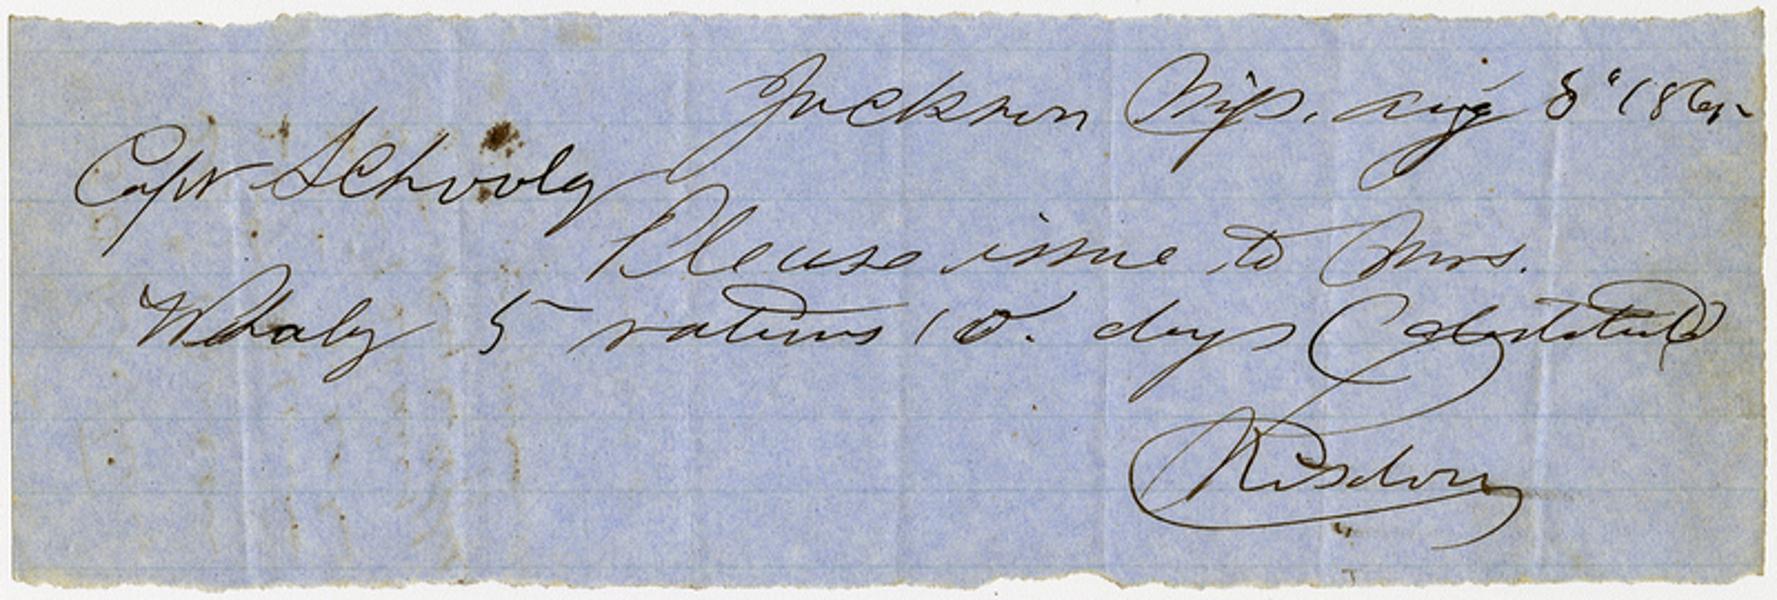 Jackson Miss. Aug 8" 186
Capt Schooly
Please issue to Mrs.
Whaly 5 rations 10. days (destitute)
Risdon